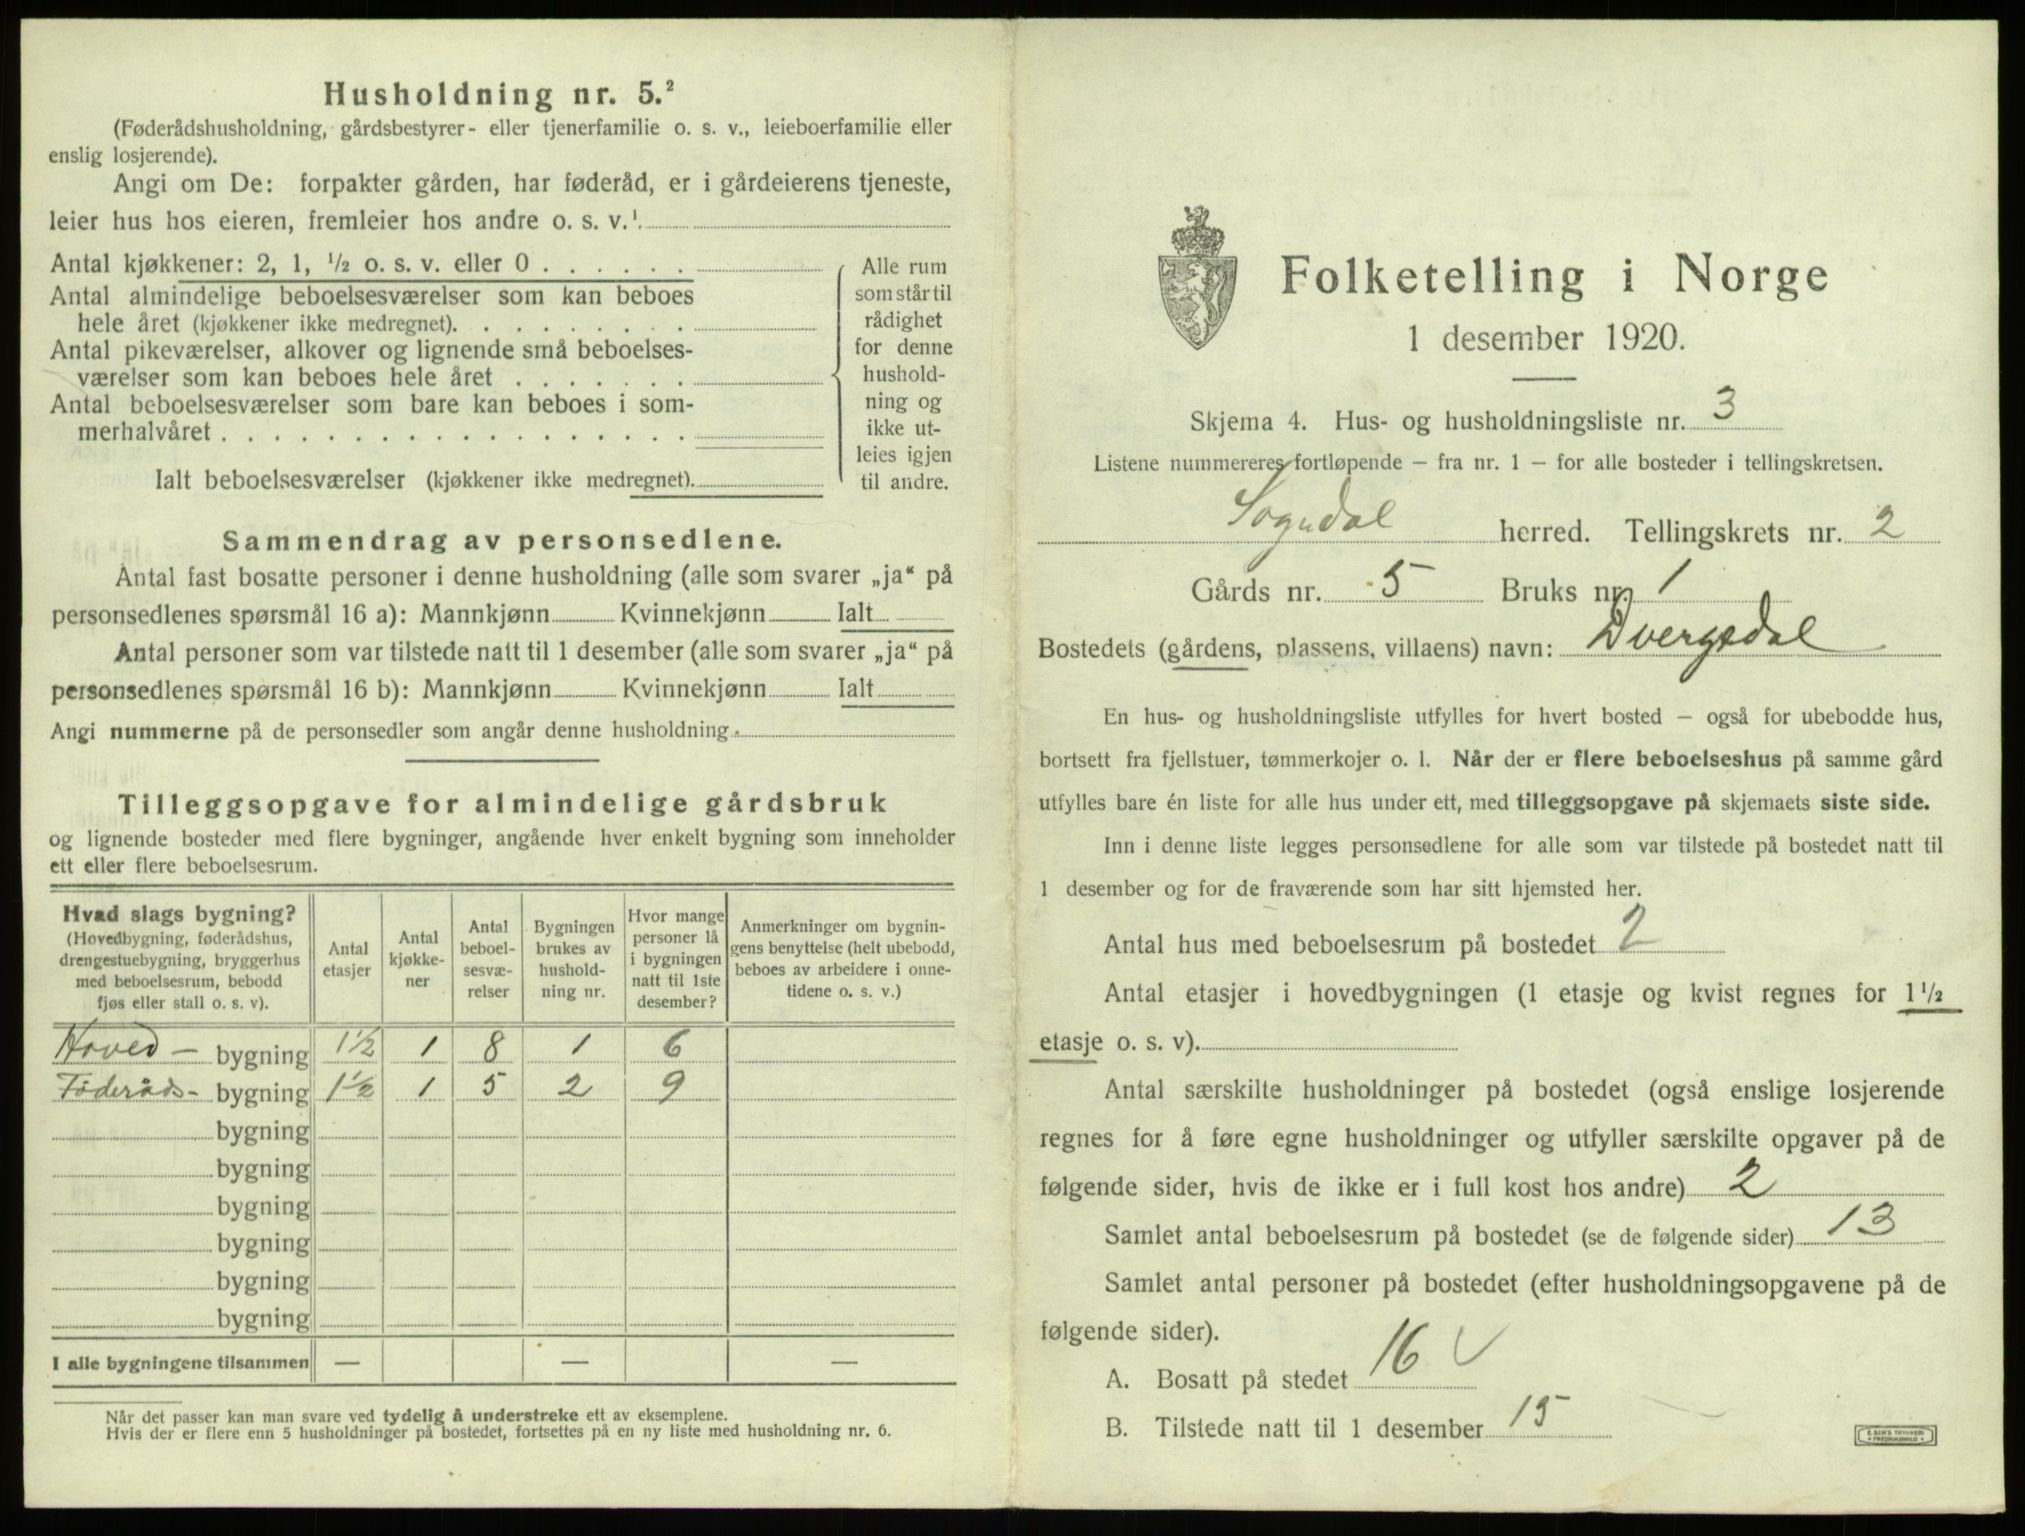 Husholdning nr. 5.²
(Føderådshusholdning, gårdsbestyrer- eller tjenerfamilie o. s. v., leieboerfamilie eller
enslig losjerende).
Angi om De: forpakter gården, har føderåd, er i gårdeierens tjeneste,
leier hus hos eieren, fremleier hos andre o. s. v.¹
Antal kjøkkener: 2, 1, ½ o. s. v. eller 0
Antal almindelige beboelsesværelser som kan beboes
hele året (kjøkkener ikke medregnet).
Antal pikeværelser, alkover og lignende små beboelses-
værelser som kan beboes hele året
Antal beboelsesværelser som bare kan beboes i som-
merhalvåret
Ialt beboelsesværelser (kjøkkener ikke medregnet).
Alle rum
som står til
rådighet
for denne
hushold-
ning og
ikke ut-
leies igjen
til andre.
Sammendrag av personsedlene.
Antal fast bosatte personer i denne husholdning (alle som svarer „ja“ på
personsedlenes spørsmål 16 a): Mannkjønn Kvinnekjønn Ialt
Antal personer som var tilstede natt til 1 desember (alle som svarer „ja“ på
personsedlenes spørsmål 16 b): Mannkjønn Kvinnekjønn Ialt
Angi nummerne på de personsedler som angår denne husholdning
Tilleggsopgave for almindelige gårdsbruk
og lignende bosteder med flere bygninger, angående hver enkelt bygning som inneholder
ett eller flere beboelsesrum.
Hvad slags bygning?
(Hovedbygning, føderådshus,
drengestuebygning, bryggerhus
med beboelsesrum, bebodd
fjøs eller stall o. s. v).
Antal
etasjer
Antal
kjøkke-
ner
Antal
beboel-
sesvæ-
relser
Bygningen
brukes av
hushold-
ning nr.
Hvor mange
personer lå
i bygningen
natt til 1ste
desember?
Anmerkninger om bygnin-
gens benyttelse (helt ubebodd,
beboes av arbeidere i onne-
tidene o. s. v.)
Hoved - bygning 1½ 1 8 1 6
Føderåds- bygning 1½ 1 5 2 9
bygning
bygning
bygning
bygning
bygning
bygning
I alle bygningene tilsammen — — —
Når det passer kan man svare ved tydelig å understreke ett av eksemplene.
Hvis der er flere enn 5 husholdninger på bostedet, fortsettes på en ny liste med husholdning nr. 6.
Folketelling i Norge
1 desember 1920.
Skjema 4. Hus- og husholdningsliste nr. 3
Listene nummereres fortløpende — fra nr. 1 — for alle bosteder i tellingskretsen.
Sogndal herred. Tellingskrets nr. 2
Gårds nr. 5 Bruks nr. 1
Bostedets (gårdens, plassens, villaens) navn: Dvergsdal
En hus- og husholdningsliste utfylles for hvert bosted — også for ubebodde hus,
bortsett fra fjellstuer, tømmerkojer o. l. Når der er flere beboelseshus på samme gård
utfylles bare én liste for alle hus under ett, med tilleggsopgave på skjemaets siste side.
Inn i denne liste legges personsedlene for alle som var tilstede på bostedet natt til
1 desember og for de fraværende som har sitt hjemsted her.
Antal hus med beboelsesrum på bostedet 2
Antal etasjer i hovedbygningen (1 etasje og kvist regnes for 1½
etasje o. s. v).
Antal særskilte husholdninger på bostedet (også enslige losjerende
regnes for å føre egne husholdninger og utfyller særskilte opgaver på de
følgende sider, hvis de ikke er i full kost hos andre) 2
Samlet antal beboelsesrum på bostedet (se de følgende sider) 13
Samlet antal personer på bostedet (efter husholdningsopgavene på de
følgende sider).
A. Bosatt på stedet 16 ✓
B. Tilstede natt til 1 desember 15